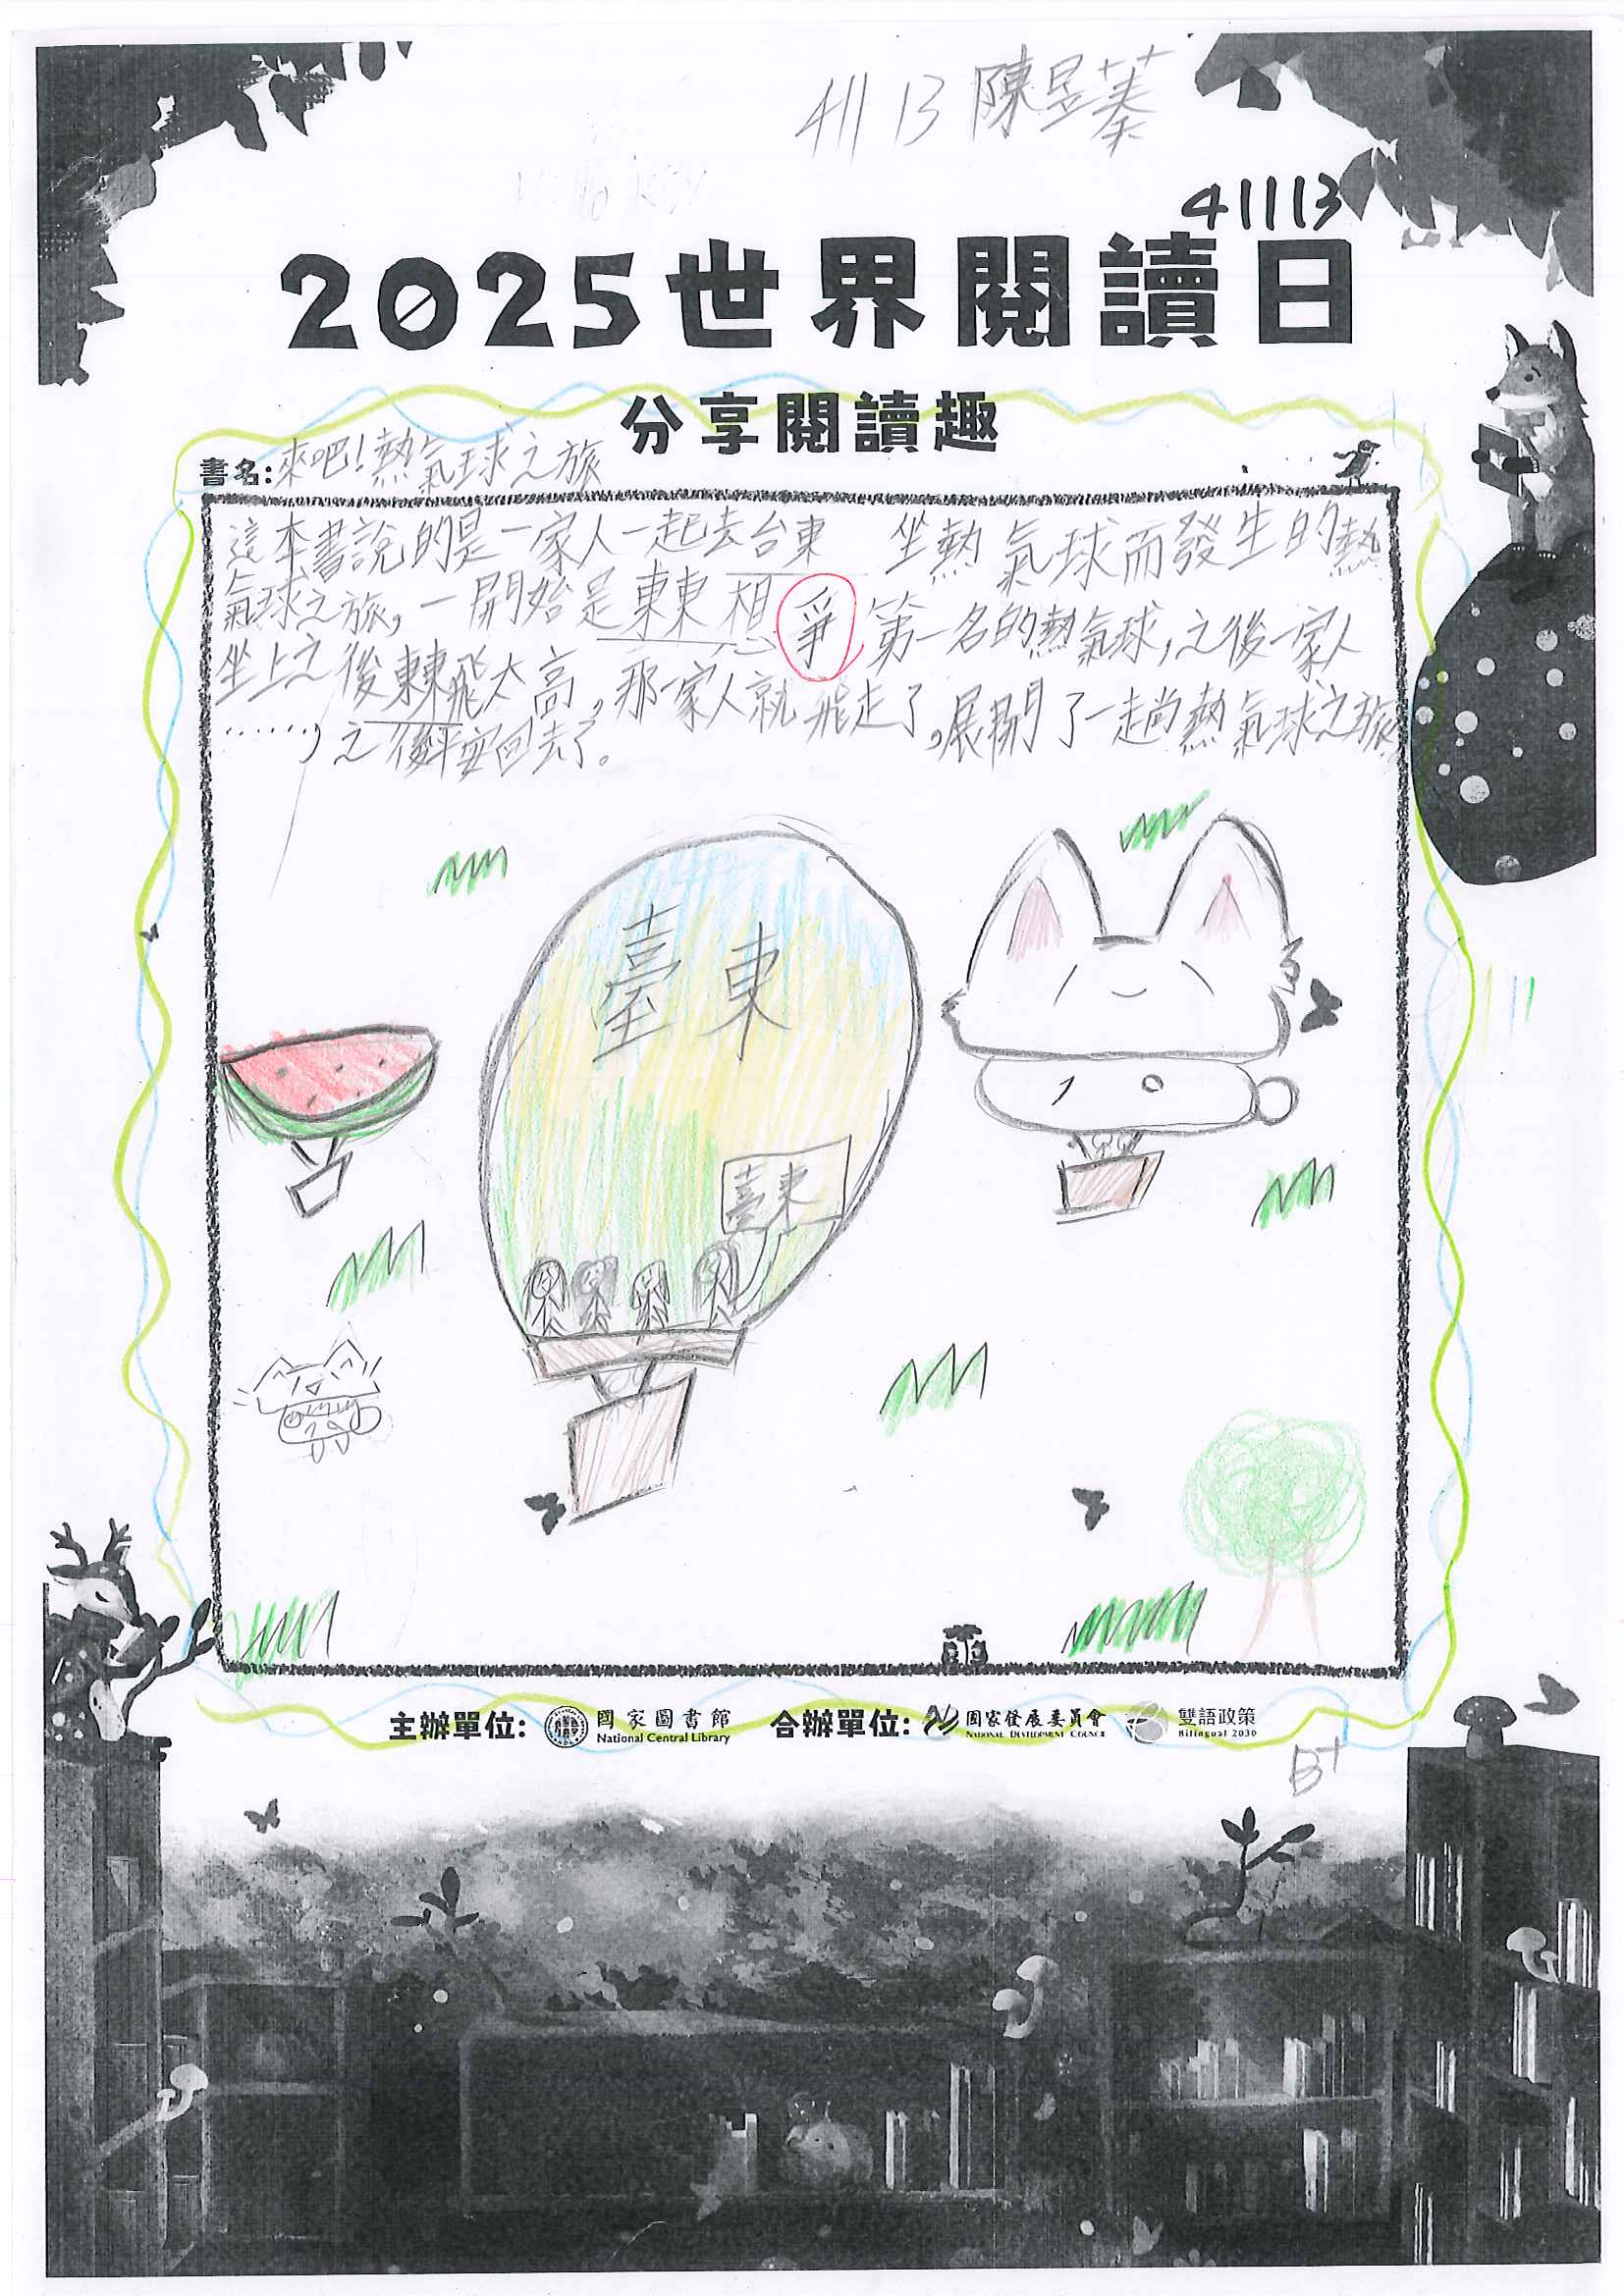 411 13 陳昱蓁
41113
2025世界閱讀日
分享閱讀趣
書名:來吧!熱氣球之旅
這本書說的是一家人一起去台東 坐熱氣球而發生的熱
氣球之旅,一開始是東東想爭第一名的熱氣球,之後一家人
坐上之後東東飛太高,那一家人就飛走了,展開了一趟熱氣球之旅
......,之後平安回去了。
臺東
臺東
主辦單位: 國家圖書館 National Central Library 合辦單位: 國家發展委員會 NATIONAL DEVELOPMENT COUNCIL 雙語政策 Bilingual 2030
B+